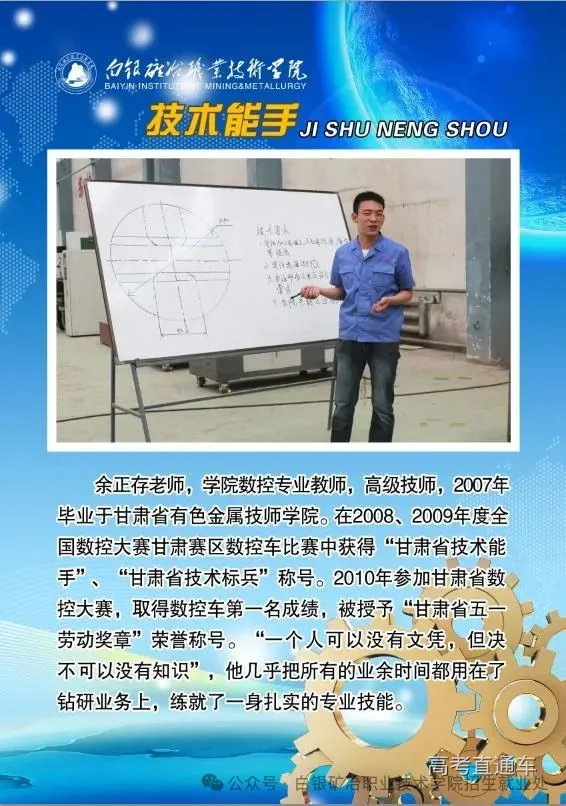 白银矿冶职业技术学院
BAIYIN INSTITUTE OF MINING&METALLURGY
技术能手 JI SHU NENG SHOU
技术要求
余正存老师，学院数控专业教师，高级技师，2007年
毕业于甘肃省有色金属技师学院。在2008、2009年度全
国数控大赛甘肃赛区数控车比赛中获得“甘肃省技术能
手”、“甘肃省技术标兵”称号。2010年参加甘肃省数
控大赛，取得数控车第一名成绩，被授予“甘肃省五一
劳动奖章”荣誉称号。“一个人可以没有文凭，但决
不可以没有知识”，他几乎把所有的业余时间都用在了
钻研业务上，练就了一身扎实的专业技能。
高考直通车
公众号 白银矿冶职业技术学院招生就业处